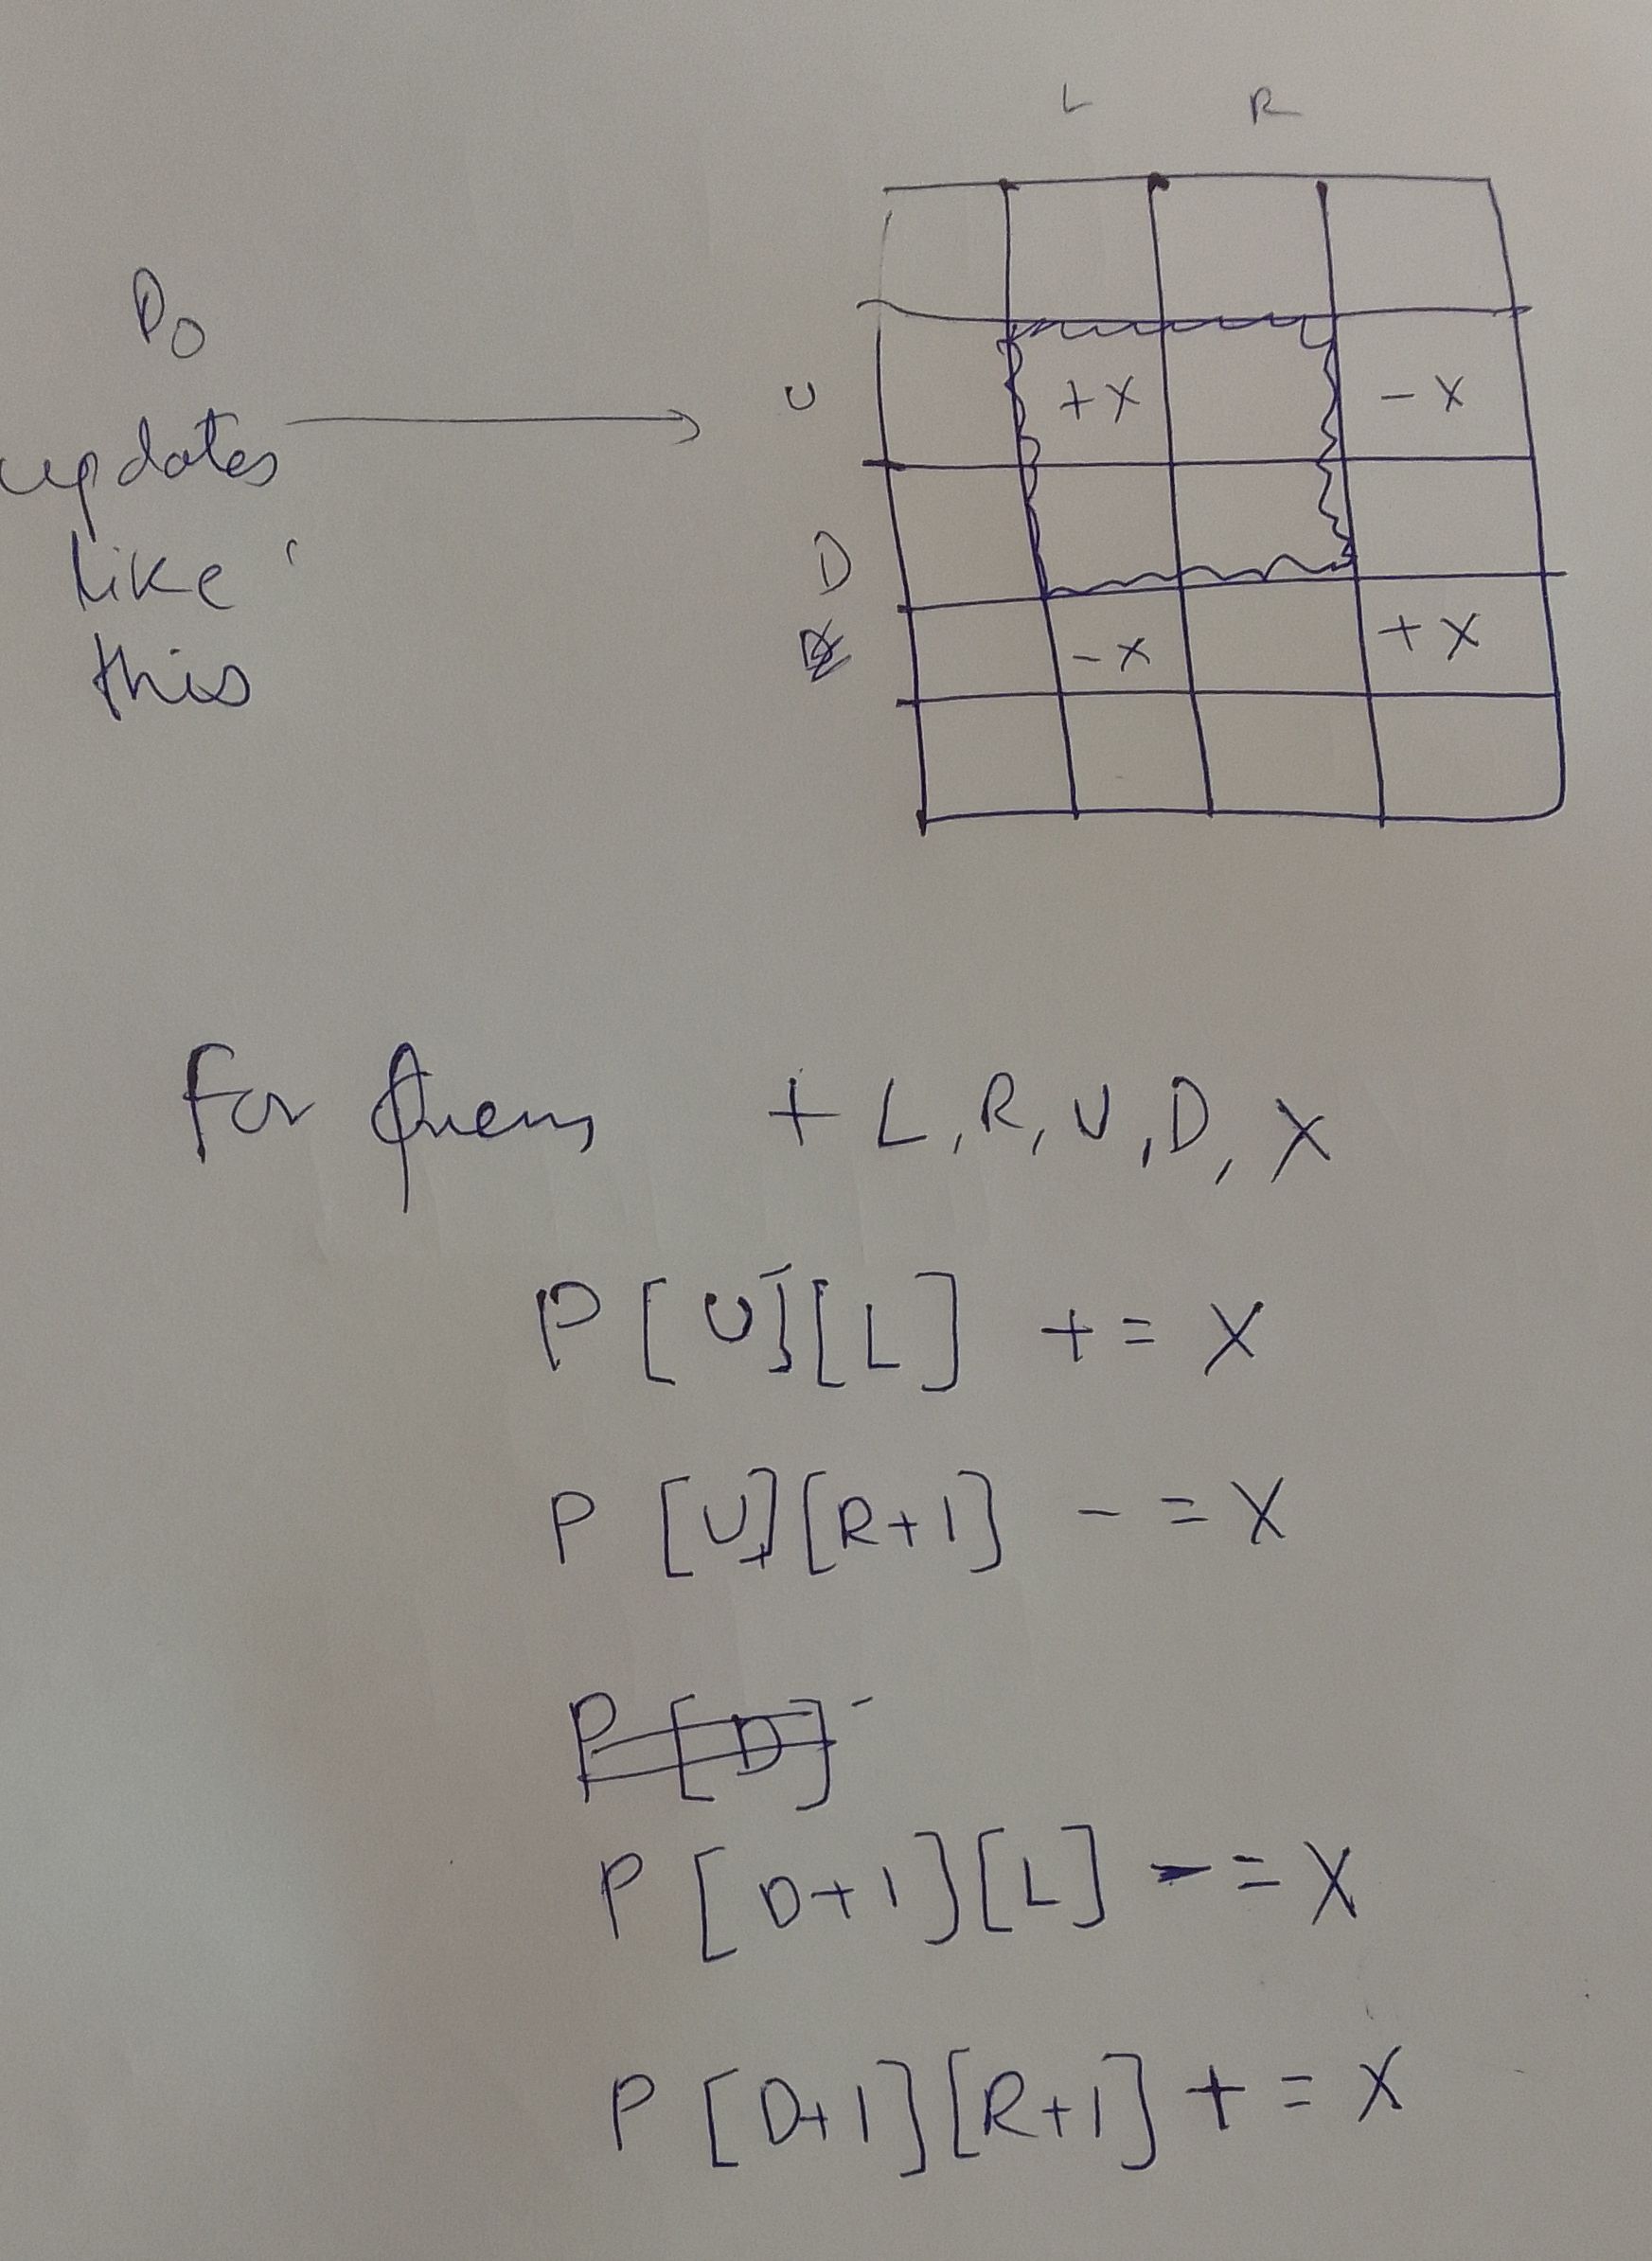 L R
Do
updates
like
this
U +X -X
D
-X +X
For Query + L, R, U, D, X
P[U][L] += X
P[U][R+1] -= X
P[D]-
P[D+1][L] -= X
P[D+1][R+1] += X